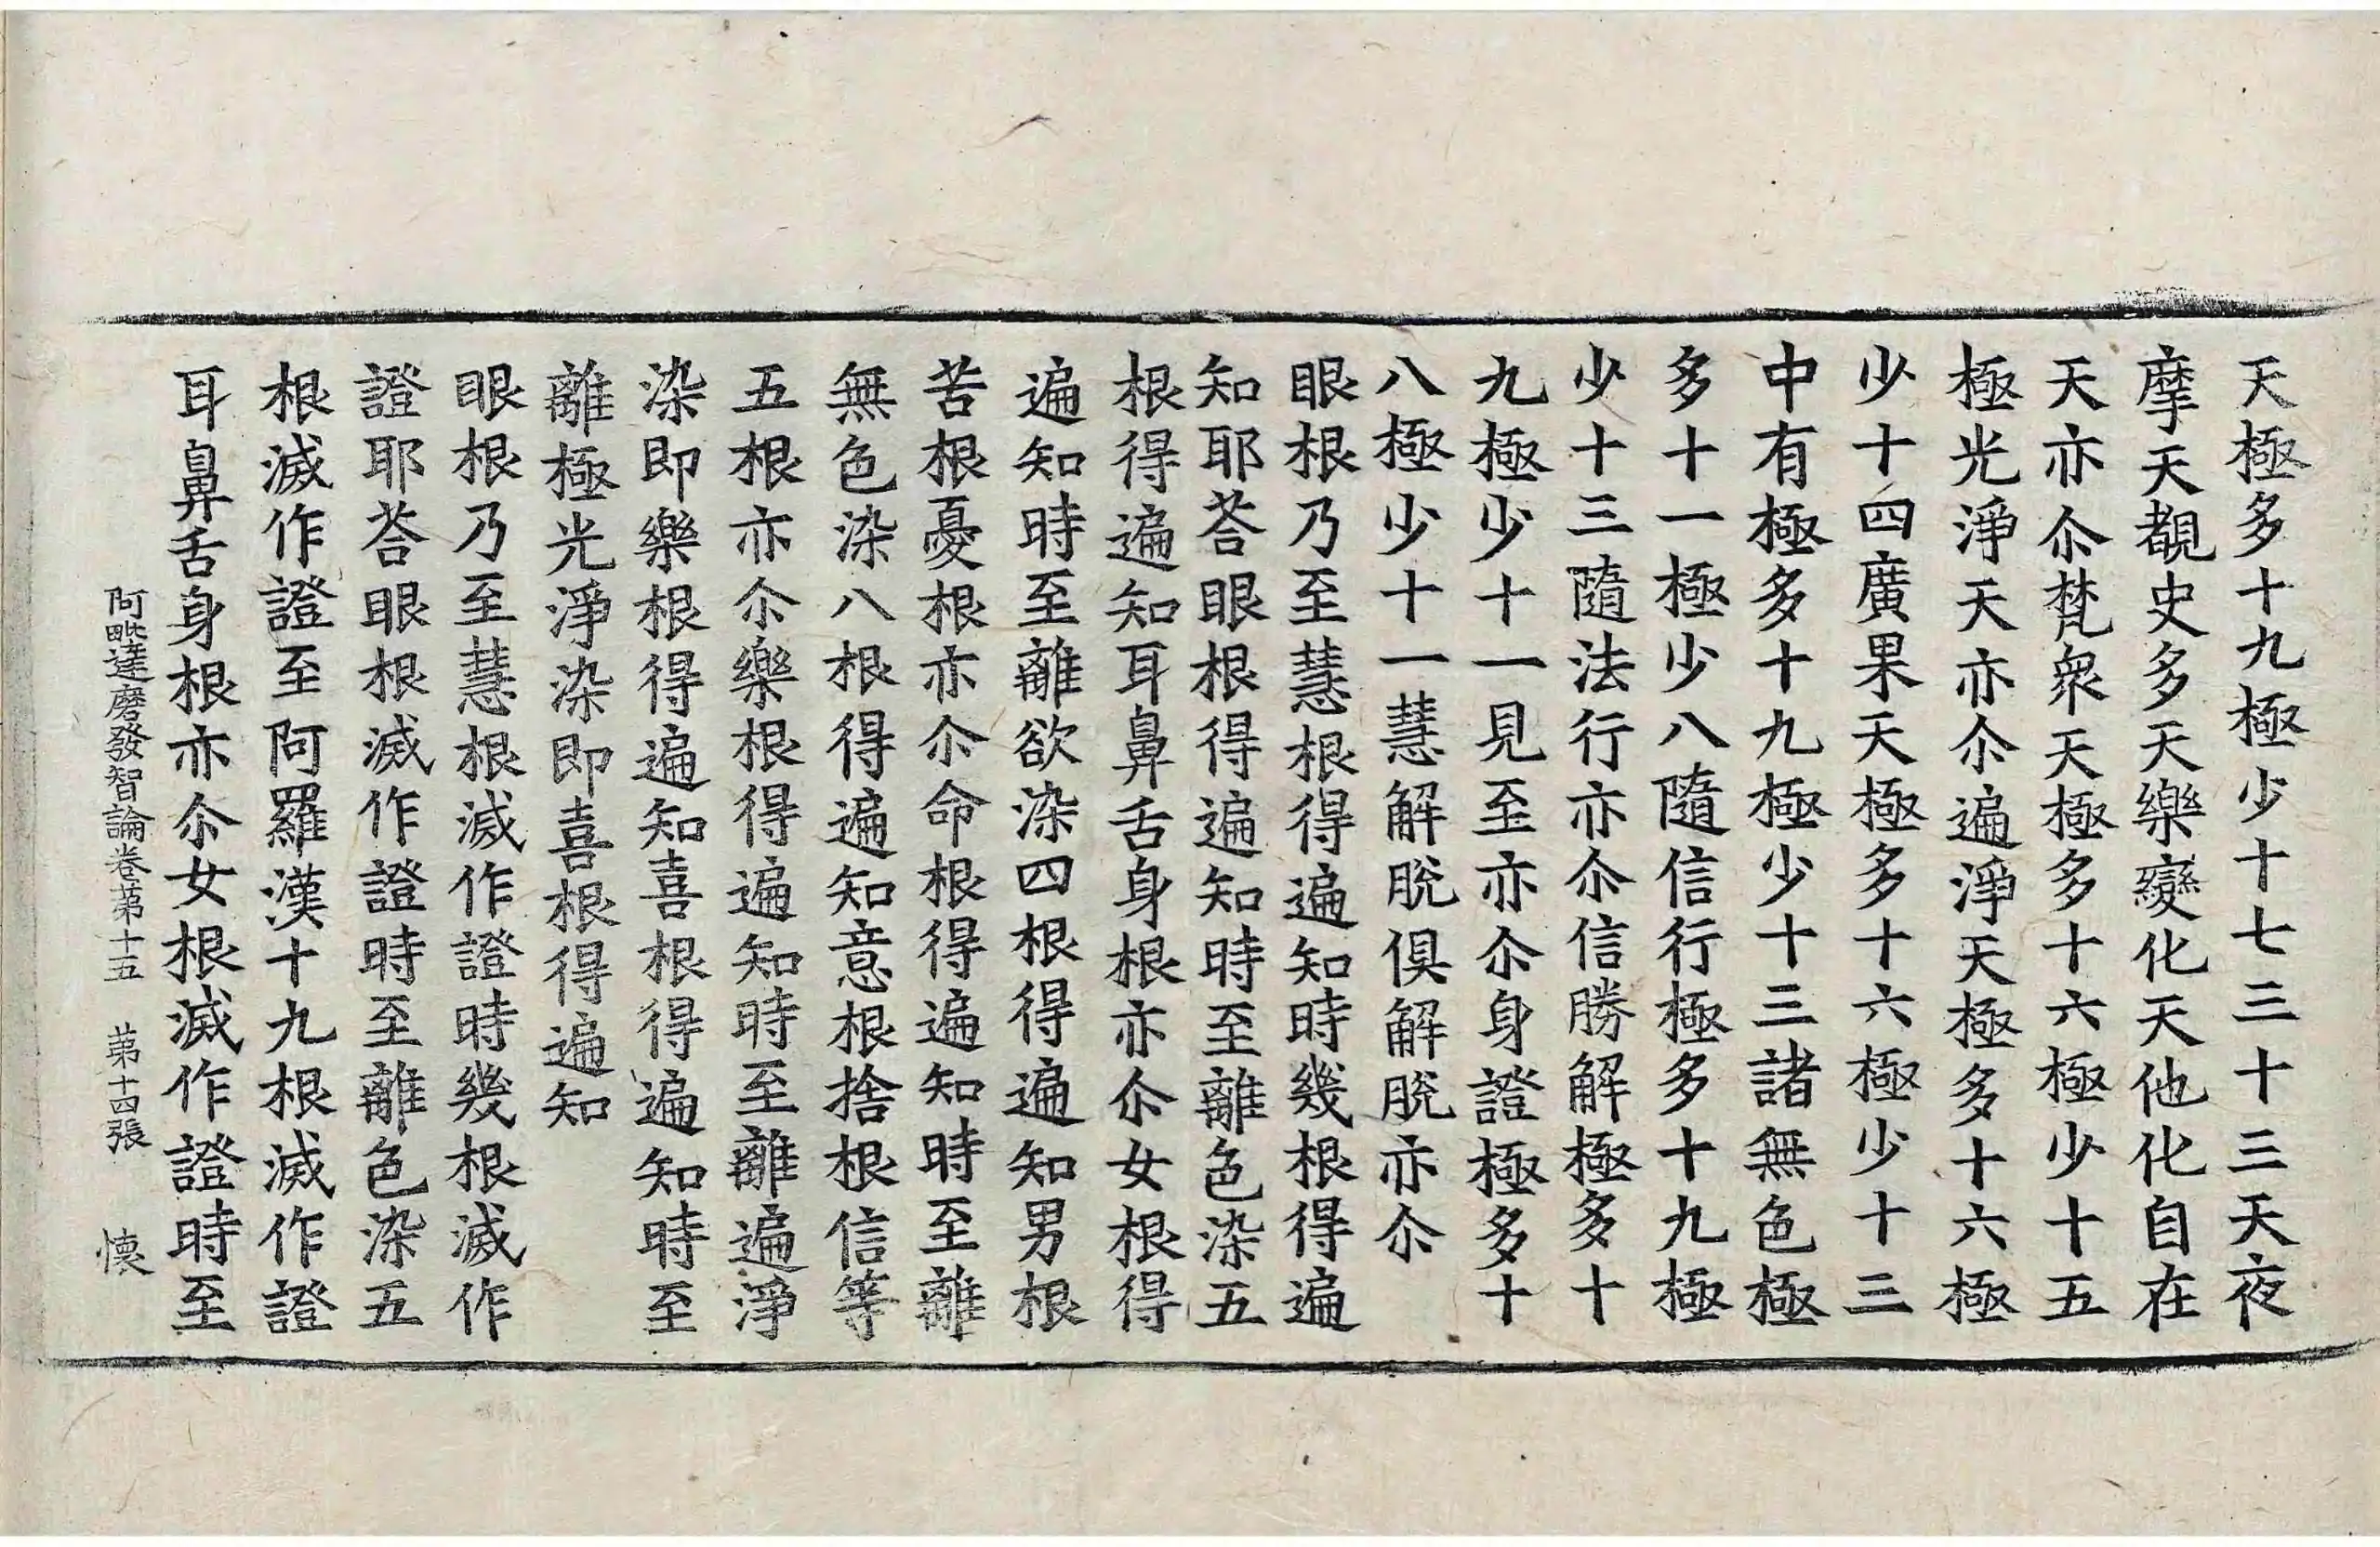 天極多十九極少十七三十三天夜
摩天覩史多天樂變化天他化自在
天亦尒梵衆天極多十六極少十五
極光淨天亦尒遍淨天極多十六極
少十四廣果天極多十六極少十三
中有極多十九極少十三諸無色極
多十一極少八隨信行極多十九極
少十三隨法行亦尒信勝解極多十
九極少十一見至亦尒身證極多十
八極少十一慧解脫俱解脫亦尒
眼根乃至慧根得遍知時幾根得遍
知耶荅眼根得遍知時至離色染五
根得遍知耳鼻舌身根亦尒女根得
遍知時至離欲染四根得遍知男根
苦根憂根亦尒命根得遍知時至離
無色染八根得遍知意根捨根信等
五根亦尒樂根得遍知時至離遍淨
染即樂根得遍知喜根得遍知時至
離極光淨染即喜根得遍知
眼根乃至慧根滅作證時幾根滅作
證耶荅眼根滅作證時至離色染五
根滅作證至阿羅漢十九根滅作證
耳鼻舌身根亦尒女根滅作證時至
阿毗達磨發智論卷苐十五　苐十四張　懐